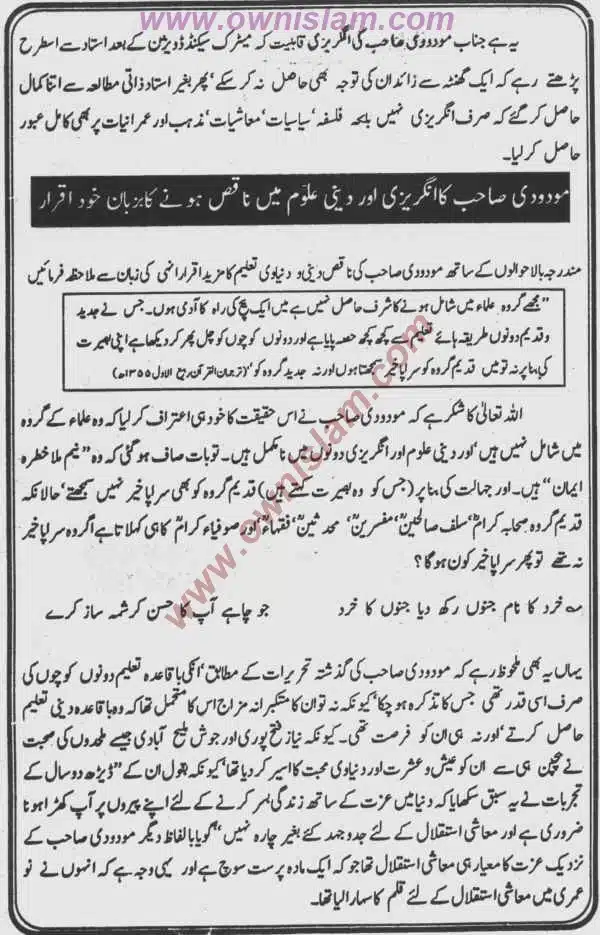 www.ownislam.com
یہ ہے جناب مودودی صاحب کی انگریزی قابلیت کہ میٹرک سیکنڈ ڈویژن کے بعد استاد سے اسطرح
پڑھتے رہے کہ ایک گھنٹہ سے زائد ان کی توجہ بھی حاصل نہ کر سکے، پھر بغیر استاد ذاتی مطالعہ سے اتنا کمال
حاصل کر گئے کہ صرف انگریزی نہیں بلکہ فلسفہ، سیاسیات، معاشیات، مذہب اور عمرانیات پر بھی کامل عبور
حاصل کر لیا۔
مودودی صاحب کا انگریزی اور دینی علوم میں ناقص ہونے کا بزبان خود اقرار
مندرجہ بالا حوالوں کے ساتھ مودودی صاحب کی ناقص دینی و دنیاوی تعلیم کا مزید اقرار انہی کی زبان سے ملاحظہ فرمائیں
”مجھے گروہ علماء میں شامل ہونے کا شرف حاصل نہیں ہے میں ایک بیچ کی راہ کا آدمی ہوں۔ جس نے جدید
و قدیم دونوں طریقہ ہائے تعلیم سے کچھ کچھ حصہ پایا ہے اور دونوں کوچوں کو چل پھر کر دیکھا ہے اپنی بصیرت
کی بنا پر نہ تو میں قدیم گروہ کو سراپا خیر سمجھتا ہوں اور نہ جدید گروہ کو“ (ترجمان القرآن ربیع الاول ۱۳۵۵ھ)
اللہ تعالیٰ کا شکر ہے کہ مودودی صاحب نے اس حقیقت کا خود ہی اعتراف کر لیا کہ وہ علماء کے گروہ
میں شامل نہیں ہیں، اور دینی علوم اور انگریزی دونوں میں نامکمل ہیں۔ تو بات صاف ہو گئی کہ وہ ”نیم ملا خطرہ
ایمان“ ہیں۔ اور جہالت کی بنا پر (جس کو وہ بصیرت کہتے ہیں) قدیم گروہ کو بھی سراپا خیر نہیں سمجھتے، حالانکہ
قدیم گروہ صحابہ کرامؓ، سلف صالحینؒ، مفسرینؒ، محدثینؒ، فقہاءؒ، اور صوفیاء کرامؒ کا ہی کہلاتا ہے اگر وہ سراپا خیر
نہ تھے تو پھر سراپا خیر کون ہو گا؟
؎ خرد کا نام جنوں رکھ دیا جنوں کا خرد جو چاہے آپ کا حسن کرشمہ ساز کرے
یہاں یہ بھی ملحوظ رہے کہ مودودی صاحب کی گذشتہ تحریرات کے مطابق، انکی باقاعدہ تعلیم دونوں کوچوں کی
صرف اسی قدر تھی جس کا تذکرہ ہو چکا، کیونکہ نہ تو ان کا متکبرانہ مزاج اس کا متحمل تھا کہ وہ باقاعدہ دینی تعلیم
حاصل کرتے، اور نہ ہی ان کو فرصت تھی۔ کیونکہ نیاز فتح پوری اور جوش ملیح آبادی جیسے ملحدوں کی صحبت
نے بچپن ہی سے ان کو عیش و عشرت اور دنیاوی محبت کا اسیر کر دیا تھا، کیونکہ بقول ان کے ”ڈیڑھ دو سال کے
تجربات نے یہ سبق سکھایا کہ دنیا میں عزت کے ساتھ زندگی بسر کرنے کے لئے اپنے پیروں پر آپ کھڑا ہونا
ضروری ہے اور معاشی استقلال کے لئے جدوجہد کئے بغیر چارہ نہیں“ گویا بالفاظ دیگر مودودی صاحب کے
نزدیک عزت کا معیار ہی معاشی استقلال تھا جو کہ ایک مادہ پرست سوچ ہے اور یہی وجہ ہے کہ انہوں نے نو
عمری میں معاشی استقلال کے لئے قلم کا سہارا لیا تھا۔
www.ownislam.com